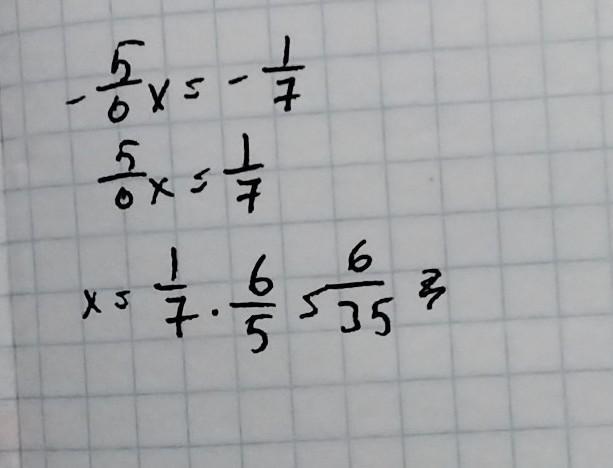 -5/6x = -1/7
5/6x = 1/7
x = 1/7 · 6/5 = 6/35